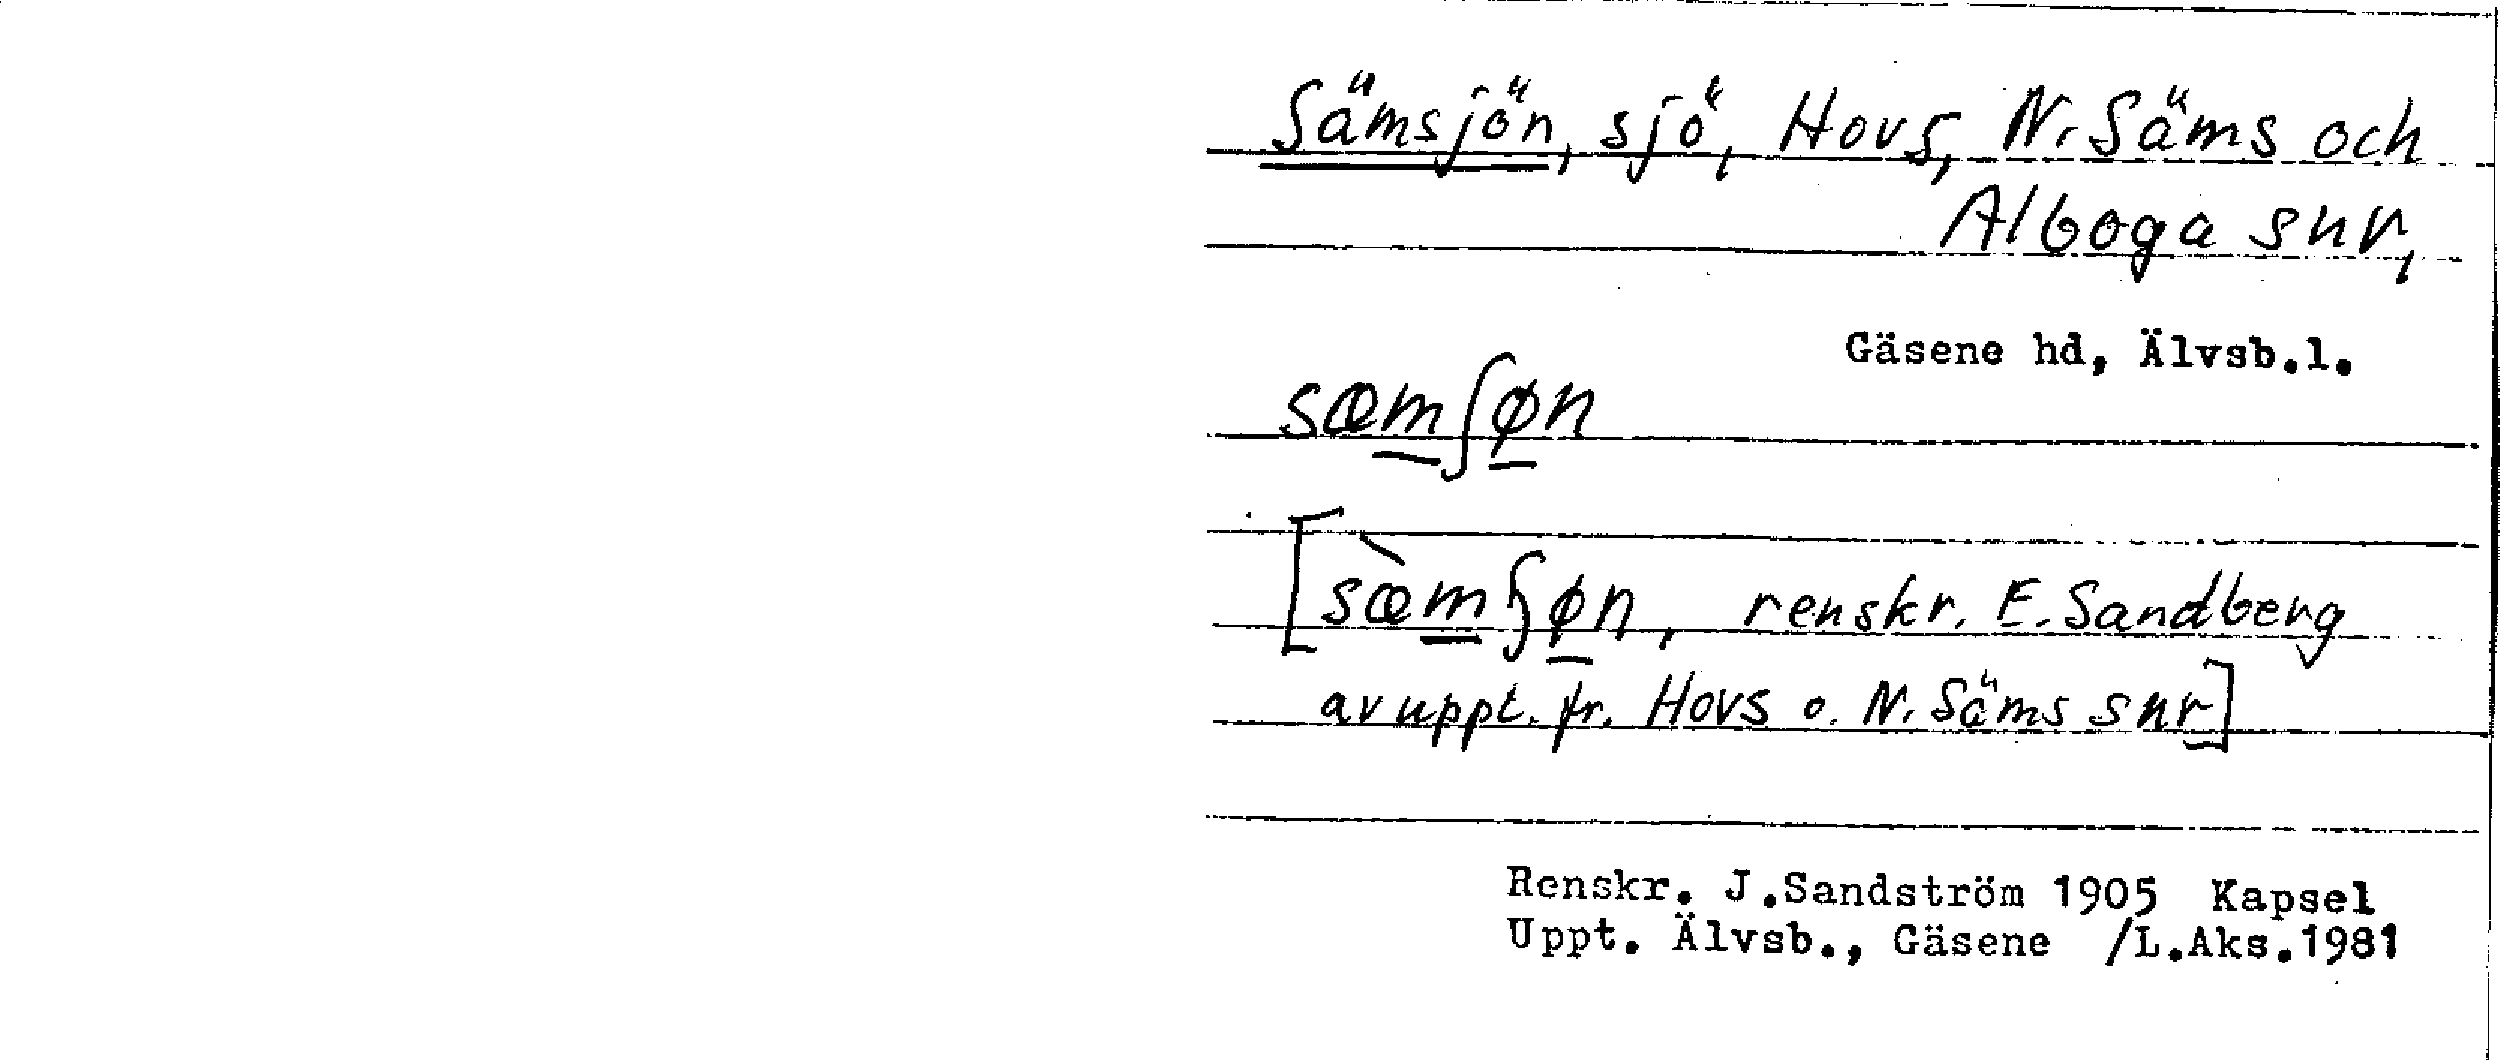 Sämsjön, sjö, Hovs, N. Säms och
Alboga snr,
Gäsene hd, Älvsb.l.
sæmʃøn
[sæ̀mʃøn, renskr. E. Sandberg
av uppt. fr. Hovs o. N. Säms snr]
Renskr. J.Sandström 1905 Kapsel
Uppt. Älvsb., Gäsene /L.Aks.1981